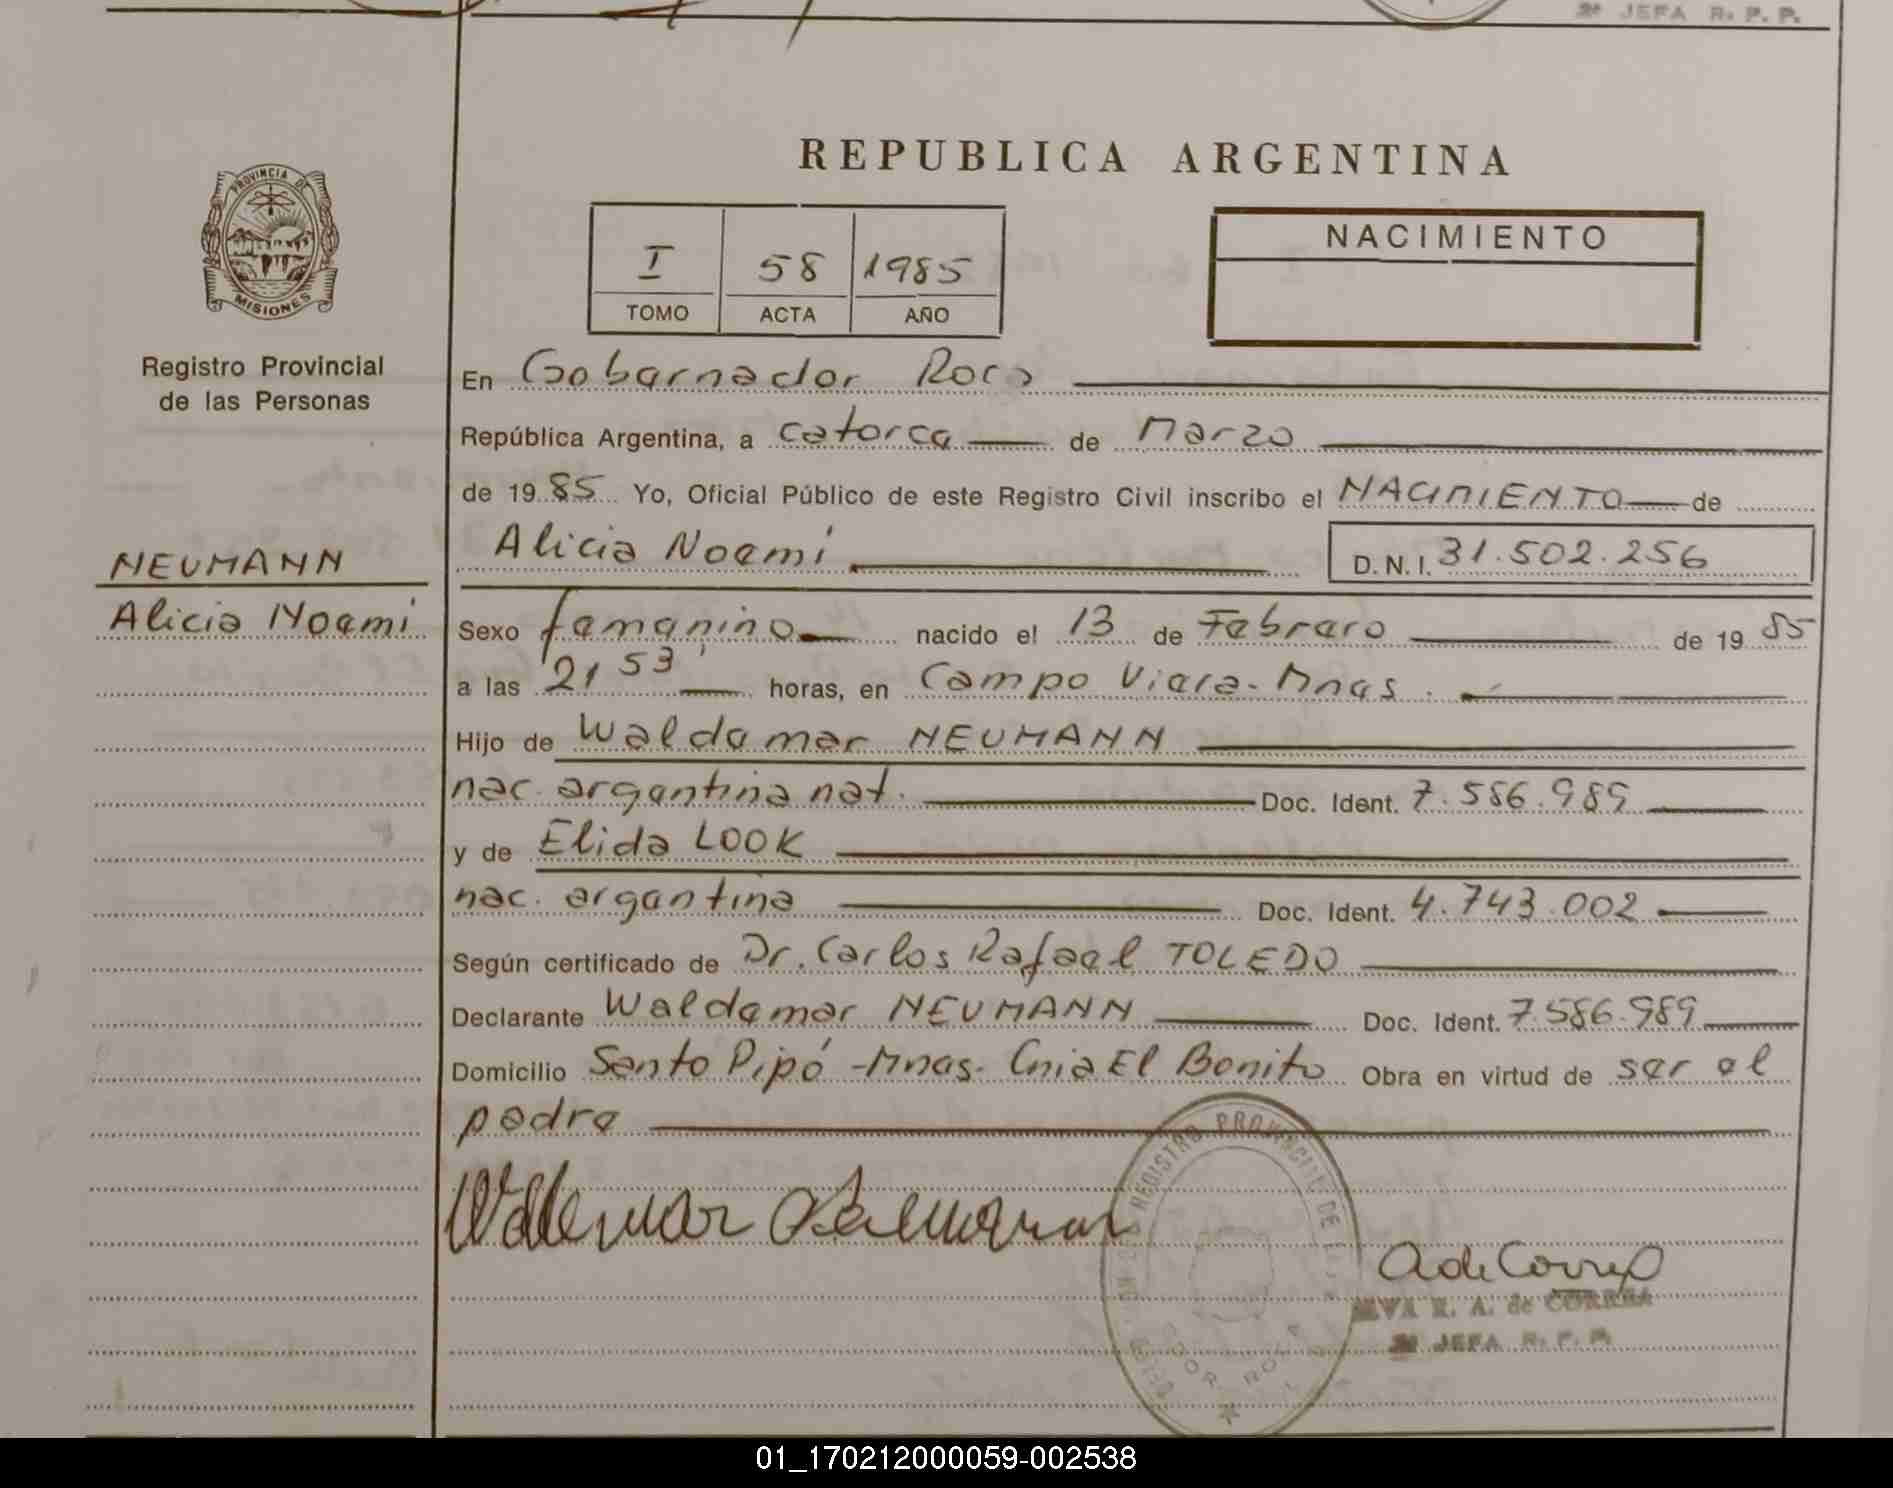 2º JEFA R. P. P.
REPUBLICA ARGENTINA
PROVINCIA DE
MISIONES
Registro Provincial
de las Personas
I 58 1985
TOMO ACTA AÑO
NACIMIENTO
En Gobernador Roca
República Argentina, a catorce de Marzo
de 1985 Yo, Oficial Público de este Registro Civil inscribo el NACIMIENTO de
NEUMANN
Alicia Noemí
Alicia Noemí D.N.I. 31.502.256
Sexo femenino nacido el 13 de Febrero de 1985
a las 21 53' horas, en Campo Viera - Mnes.
Hijo de Waldemar NEUMANN
nac. argentina nat. Doc. Ident. 7.586.989
y de Elida LOOK
nac. argentina Doc. Ident. 4.743.002
Según certificado de Dr. Carlos Rafael TOLEDO
Declarante Waldemar NEUMANN Doc. Ident. 7.586.989
Domicilio Santo Pipó - Mnes. Cnia El Bonito Obra en virtud de ser el
padre
REGISTRO PROVINCIAL DE LAS
GDOR. ROCA
A de Correa
R. A. de CORREA
2º JEFA R. P. P.
01_170212000059-002538